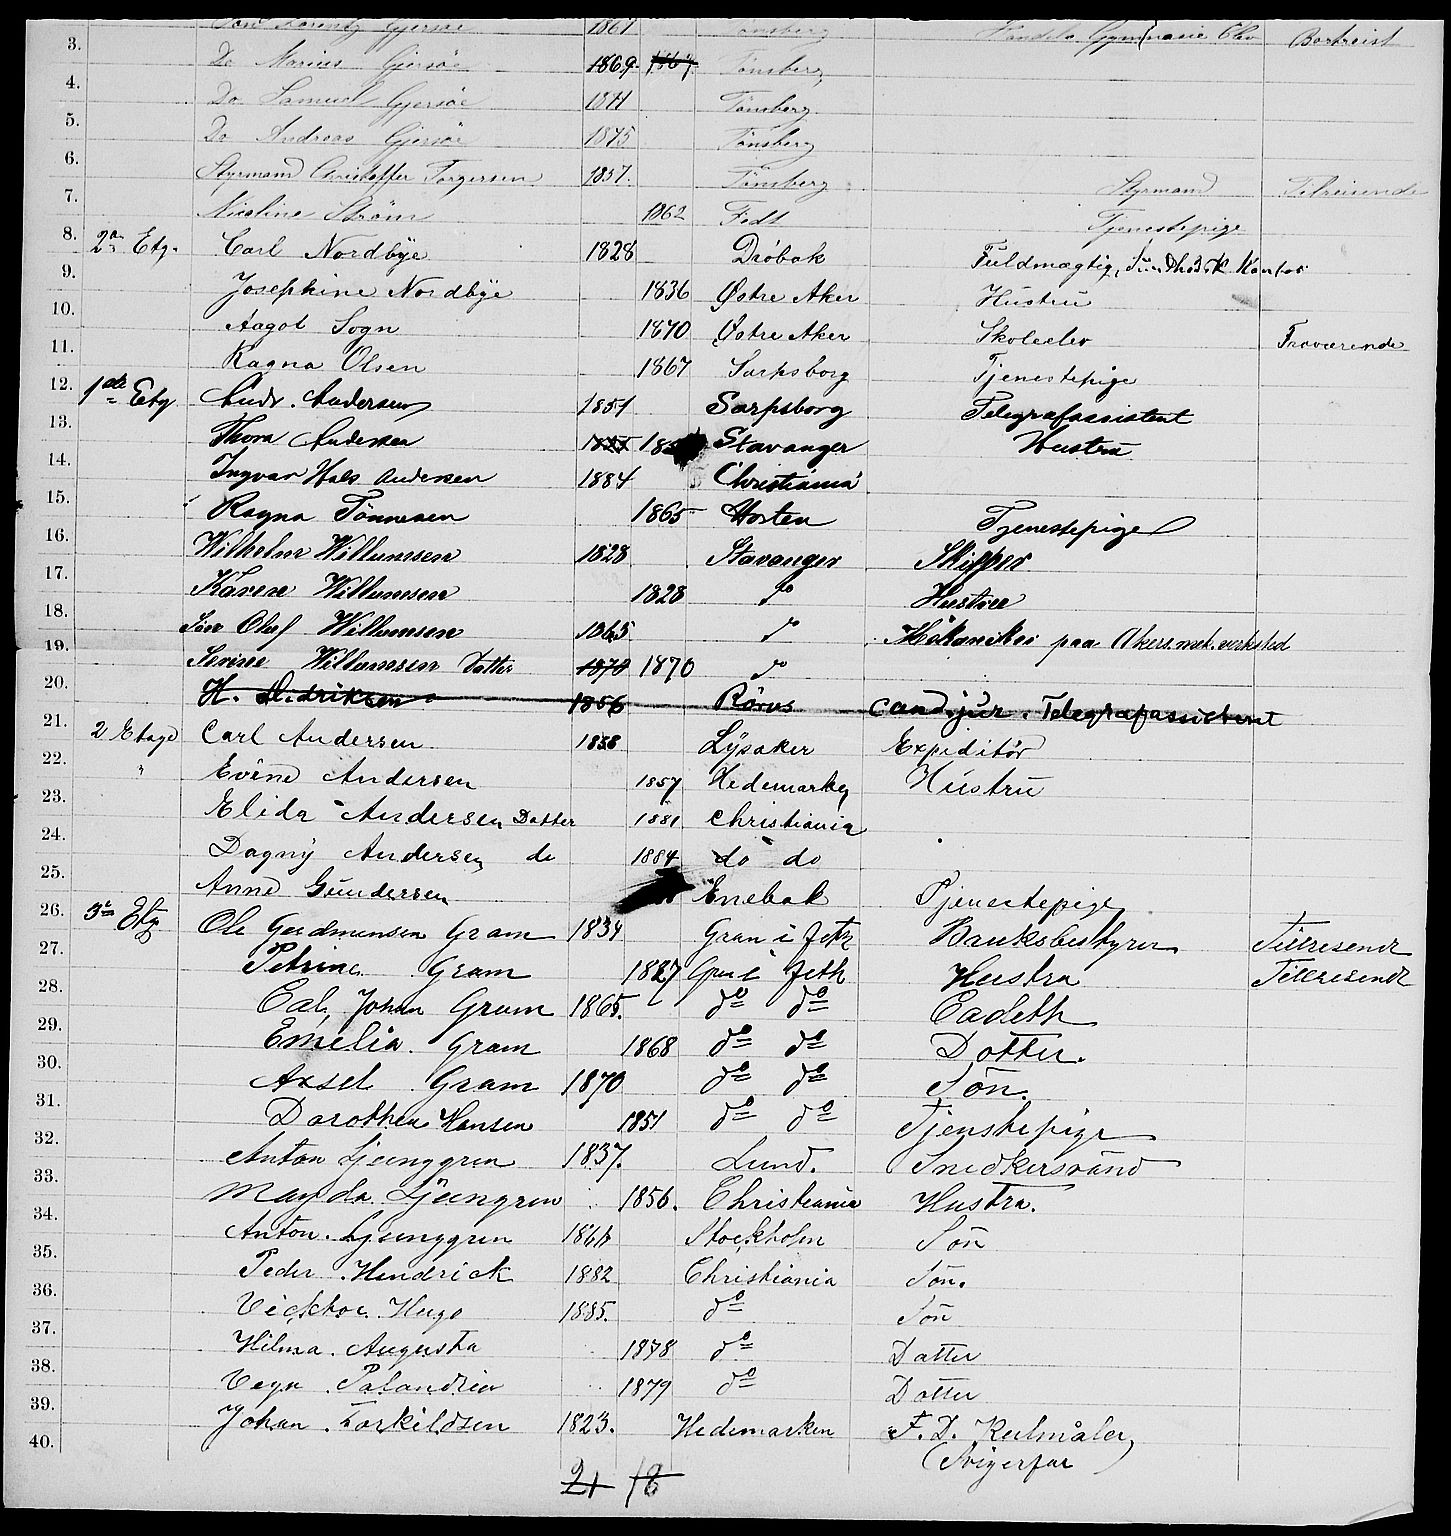 3. Gjersøe 1867 Tønsberg Handels Gymnasie Elev Bortreist
4. Do Marius Gjersøe 1869. Tønsberg
5. Do Samuel Gjersøe 1871 Tønsberg
6. Do Andreas Gjersøe 1875 Tønsberg
7. Styrmand Christoffer Torgersen 1857. Tønsberg Styrmand Tilreisende
8. Nicoline Strøm 1862 Tjenestepige
9. 2den Etg. Carl Nordbye 1828 Drøbak Fuldmægtig, Kontor
10. Josephine Nordbye 1836 Østre Aker Hustru
11. Aagot Sogn 1870 Østre Aker Skoleelev Fraværende
12. Ragna Olsen 1867 Sarpsborg Tjenestepige
13. 1ste Etg Andr. Andersen 1851 Sarpsborg Telegrafassistent
14. Thora Andersen Stavanger Hustru
15. Ingvar Hals Andersen 1884 Christiania
16. Ragna Tønnesen 1865 Horten Tjenestepige
17. Wilhelm Willumsen 1828 Stavanger Skipper
18. Karen Willumsen 1828 do Hustru
19. Søn Oluf Willumsen 1865 do Mekaniker paa Akers mek. verksted
20. Willumsen Datter 1870 1870 do
21. H. Hendriksen 1856 Røros cand. jur. Telegrafassistent
22. 2 Etage Carl Andersen 1858 Lysaker Expeditør
23. " Evine Andersen 1857 Hedemarken Hustru
24. Elida Andersen Datter 1881 Christiania
25. Dagny Andersen do 1884 do do
26. Anne Gundersen Enebak Tjenestepige
27. 3de Etg Ole Gram 1834 Gran i Banksbestyrer Tilreisende
28. Petrine Gram 1827 Gran i Hustru Tilreisende
29. Johan Gram 1865. do do Cadeth
30. Emelia. Gram 1868 do do Dotter.
31. Axsel Gram 1870 do do Søn.
32. Dorothea Hansen 1851 do do Tjenstepige
33. Anton Ljunggren 1837. Lund. Snedkersvänd
34. Magda Ljungren 1856. Christiania Hustru.
35. Anton. Ljunggren Stockholm Søn
36. Peder Hendrick 1882 Christiania Søn.
37. Vicktor Hugo 1885. do Søn
38. Hilma. Augusta 1878 do Datter
39. 1879 do Datter
40. Johan Torkildsen 1823. Hedemarken F. D. Reilmåler
(Svigerfar)
21 18